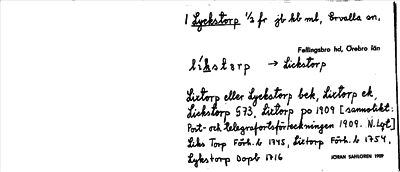 1 Lyckstorp 1/2 fr jb kb ml, Ervalla sn,
Fellingsbro hd, Örebro län
líkstɔrp → Lickstorp
Lictorp eller Lyckstorp bek, Lictorp ek,
Lickstorp §73, Lictorp po 1909 [sannolikt:
Post- och telegrafortsförteckningen 1909. N.Lgt]
Liks Torp Förh. b 1745, Lictorp Förh. b 1754,
Lykstorp Dopb 1716
JÖRAN SAHLGREN 1929